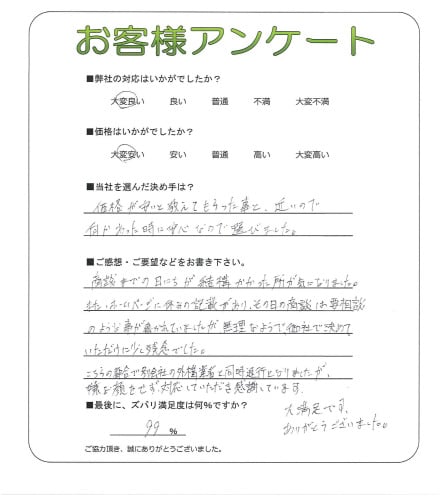 お客様アンケート
■弊社の対応はいかがでしたか？
大変良い 良い 普通 不満 大変不満
■価格はいかがでしたか？
大変安い 安い 普通 高い 大変高い
■当社を選んだ決め手は？
価格が安いと教えてもらった事と、近いので
何かあった時に安心なので選びました。
■ご感想・ご要望などをお書き下さい。
商談までの日にちが結構かかった所が気になりました。
また、ホームページに休みの記載があり、その日の商談は要相談
のような事が書かれていましたが無理なようで御社で決めて
いただけに少し残念でした。
こちらの都合で別会社の外構業者と同時進行となりましたが、
嫌な顔をせず対応していただき感謝しています。
■最後に、ズバリ満足度は何%ですか？
99 %
大満足です。
ありがとうございました。
ご協力頂き、誠にありがとうございました。